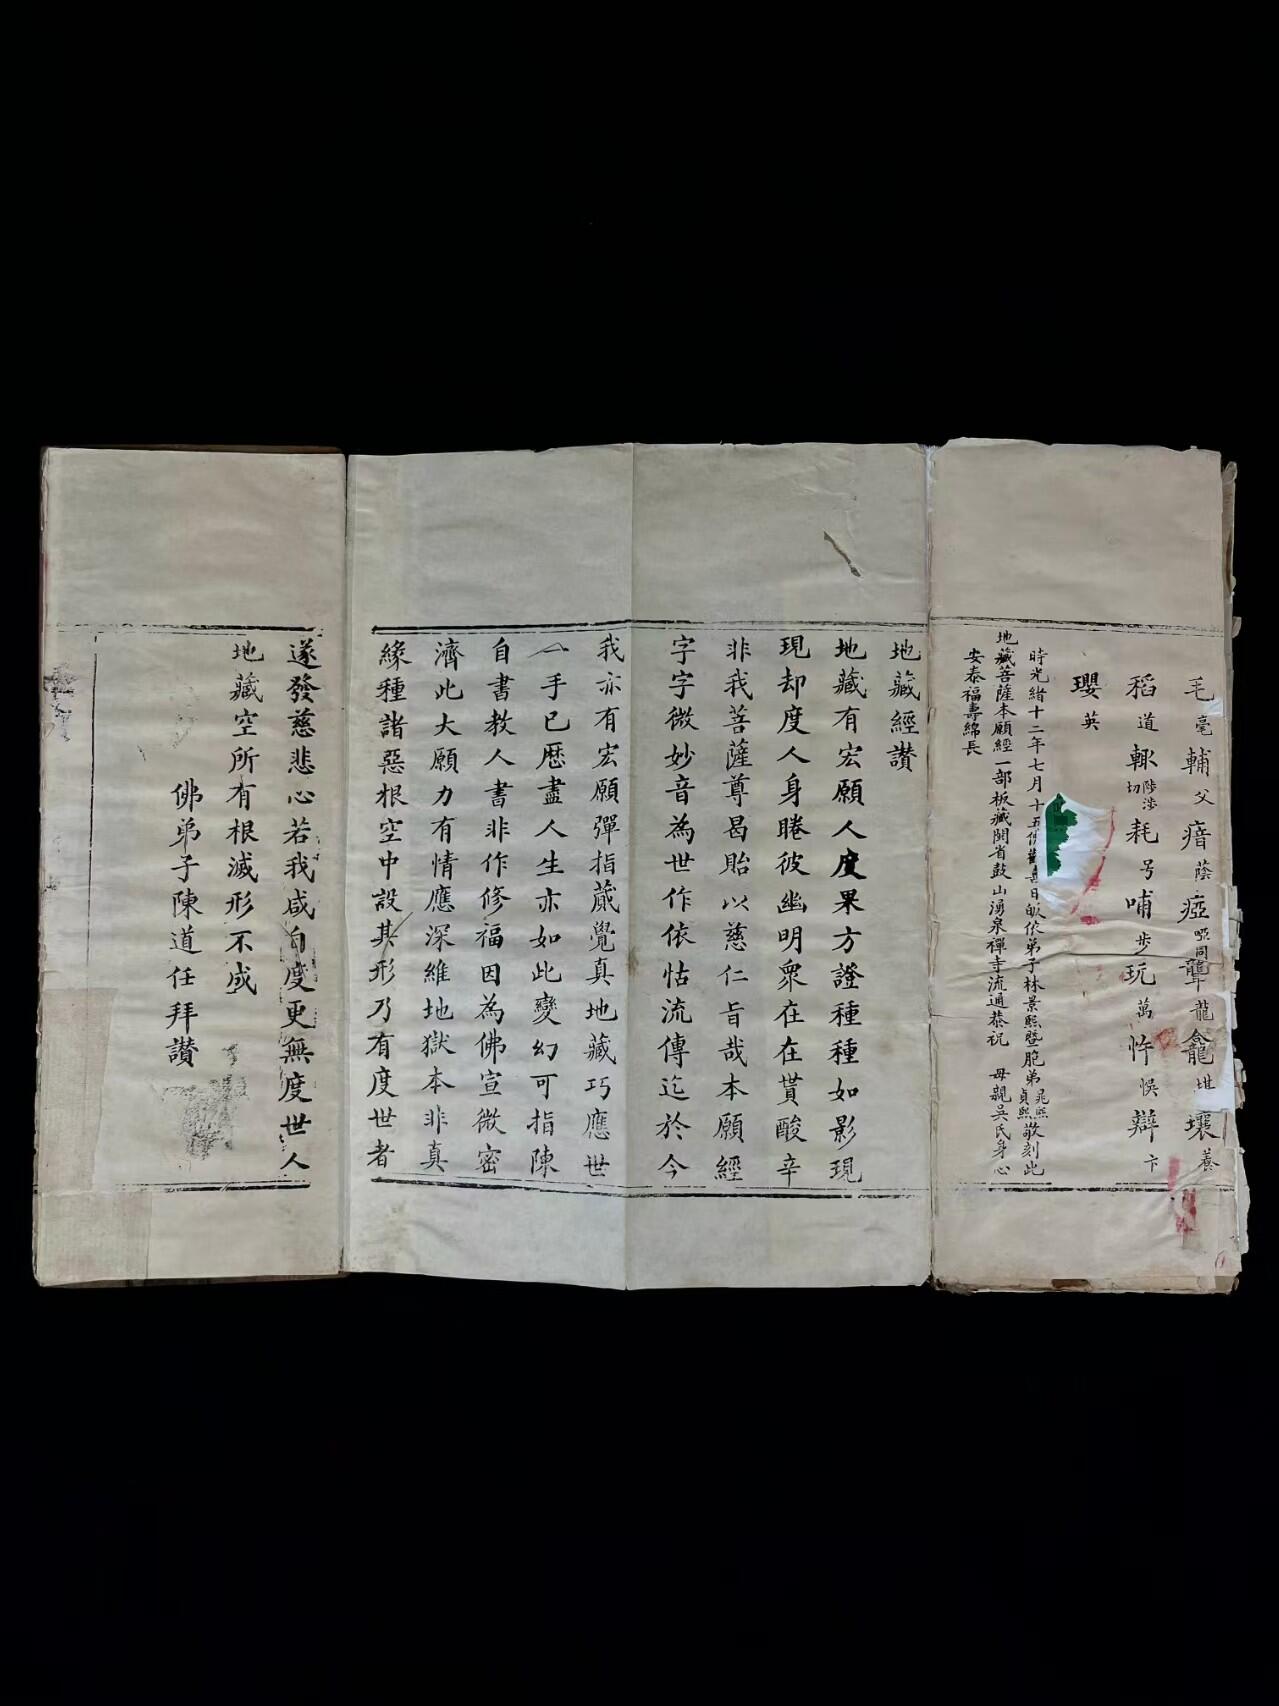 毛毫輔父瘖蔭瘂啞同聾龍龕堪壤養
稻道輙陟涉切耗号哺步玩萬忤悞辯卞
瓔英
時光緒十二年七月十五佛歡喜日皈依弟子林景熙暨胞弟晁熙貞熙敬刻此
地藏菩薩本願經一部板藏閩省鼓山湧泉禪寺流通恭祝 母親吳氏身心
安泰福壽綿長
地藏經讃
地藏有宏願人度果方證種種如影現
現却度人身睠彼幽明衆在在貰酸辛
非我菩薩尊曷貽以慈仁旨哉本願經
字字微妙音為世作依怙流傳迄於今
我亦有宏願彈指蕆覺真地藏巧應世
一手已歷盡人生亦如此變幻可指陳
自書教人書非作修福因為佛宣微密
濟此大願力有情應深維地獄本非真
緣種諸惡根空中設其形乃有度世者
遂發慈悲心若我咸自度更無度世人
地藏空所有根滅形不成
佛弟子陳道任拜讃